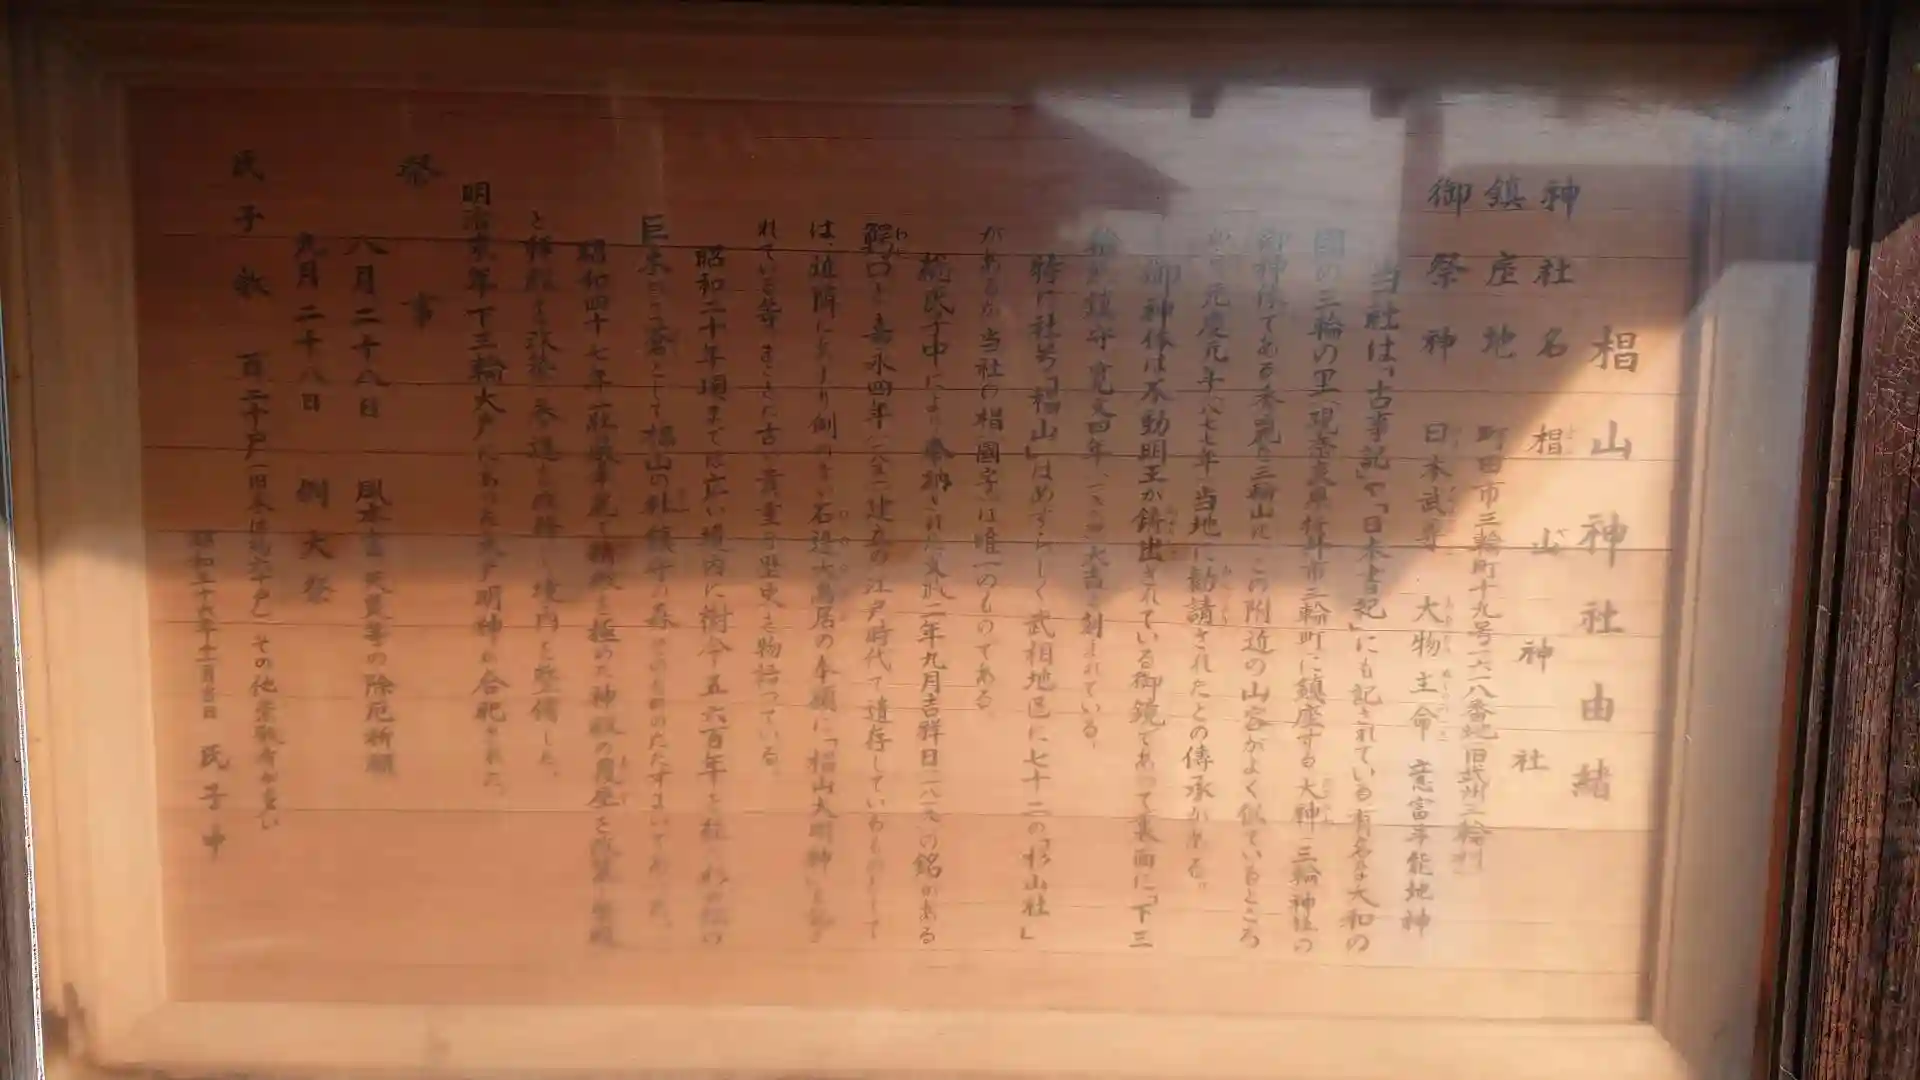 椙山神社由緒
神社名 椙山神社
鎮座地 町田市三輪町十九号一六一八番地(旧武州三輪村)
御祭神 日本武尊 大物主命 意富斗能地神
当社は、「古事記」や「日本書紀」にも記されている有名な大和の
国の三輪の里(現奈良県桜井市三輪町に鎮座する大神(三輪神社)の
御神体である 三輪山が、この附近の山容がよく似ているところ
から 元慶元年(八七七年)当地に勧請されたとの傳承がある。
御神体は不動明王が鋳出されている御鏡であって裏面に「下三
輪 鎮守寛文四年 大吉 刻まれている。
特に社号「椙山」はめずらしく武相地区に七十二の「杉山社」
があるが当社の椙(国字)は唯一のものである。
総氏子中により奉納された文政二年九月吉祥日(一八一九)の銘のある
鰐口と嘉永四年(一八五一)建立の江戸時代で遺存しているものとして
は、近隣に 石造大鳥居の本額に「椙山大明神」と記さ
れている等 古い貴重な歴史を物語っている。
昭和二十年頃までは広い境内に樹令五六百年を経た杉 の
巨木が 蒼として椙山の杜、鎮守の森 のたたずまいであった。
昭和四十七年 を極めた神殿の覆屋を改築し
と拝殿を改築し参道を 境内を整備した。
明治 年下三輪大戸にあった大戸明神を合祀された。
祭事
八月二十八日 風水害 等の除厄祈願
九月二十八日 例大祭
氏子数 百二十戸(旧来は 十戸)その他崇敬者が多い
昭和五十六年十二月吉日 氏子中